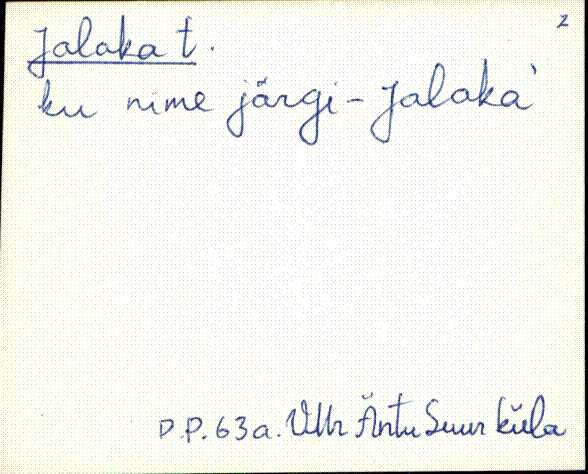 2
Jalaka t.
ku nime järgi - Jalaka'
D.P. 63a. VMr Äntu Suurküla